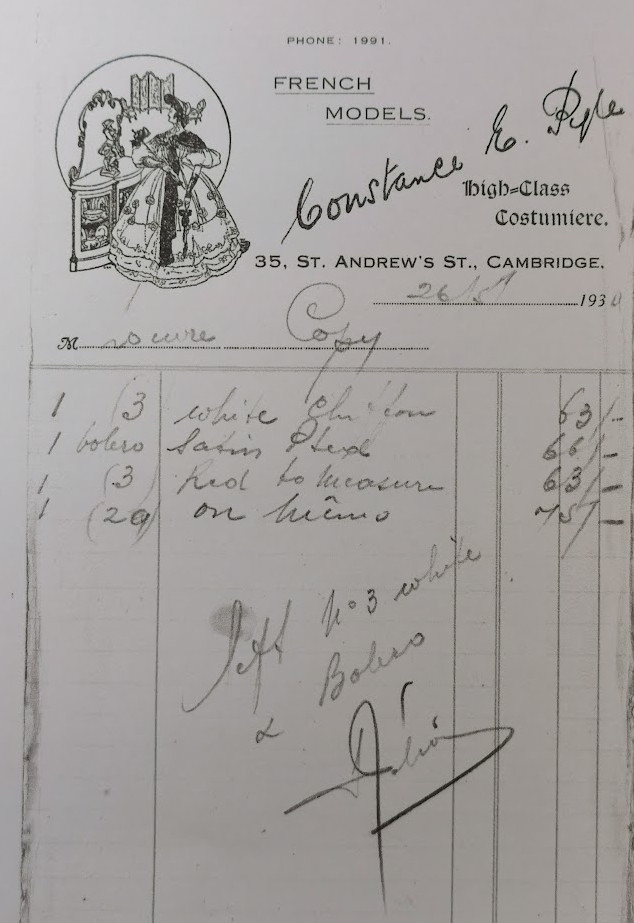 PHONE: 1991.
FRENCH
MODELS.
Constance E. Pyle
High=Class
Costumiere.
35, ST. ANDREW'S ST., CAMBRIDGE.
26/5/ 193
M Copy
1 (3 white Chiffon 63/-
1 bolero Satin 66/-
1 (3) Red to measure 63/-
1 (29) on Mémo 75/-
Left No 3 white
& Bolero